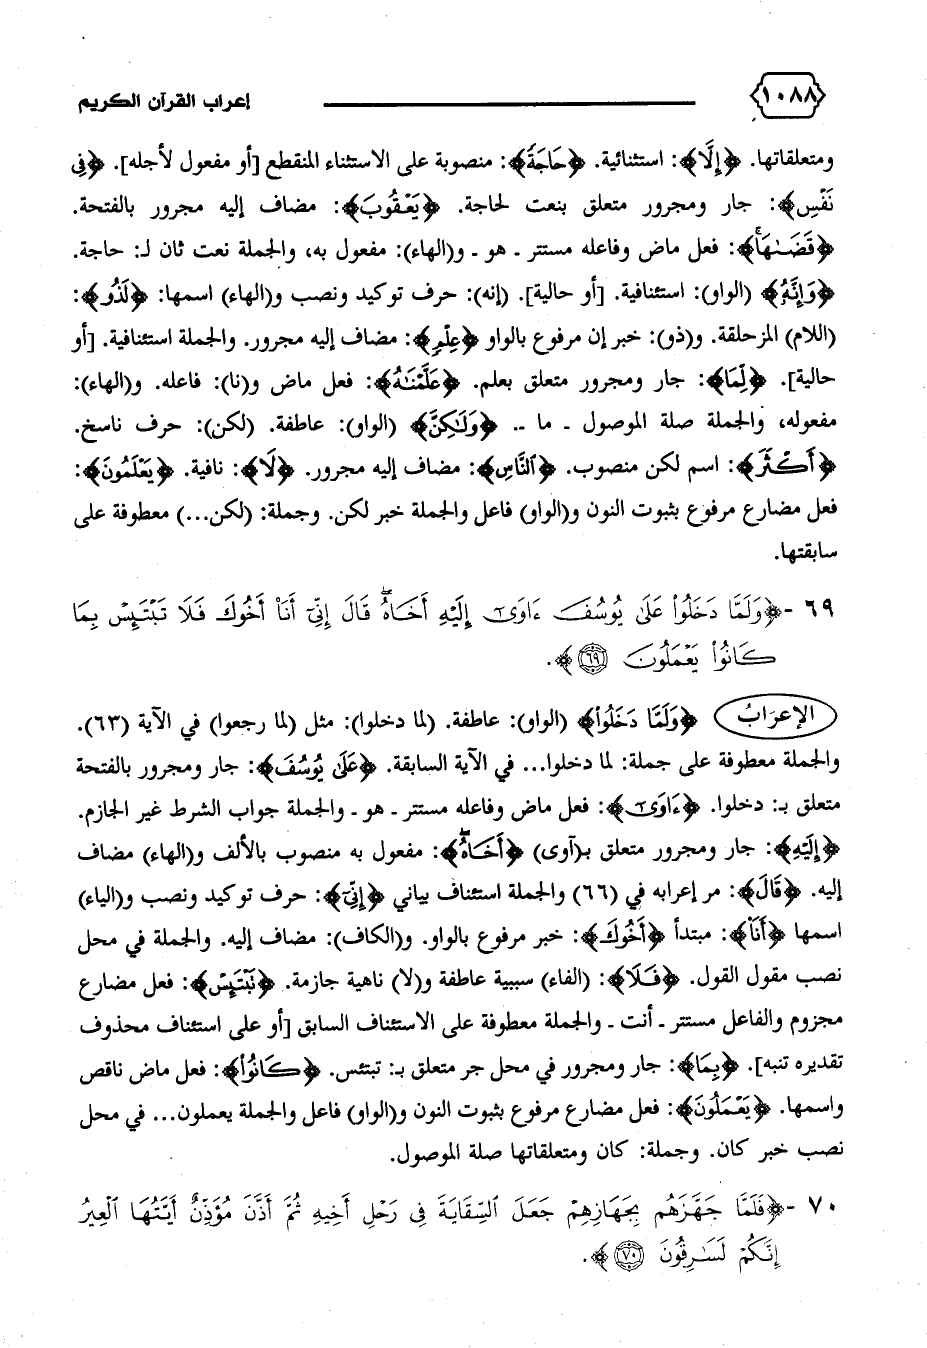 ١٠٨٨ إعراب القرآن الكريم
ومتعلقاتها. ﴿إِلَّا﴾: استثنائية. ﴿حَاجَةً﴾: منصوبة على الاستثناء المنقطع [أو مفعول لأجله]. ﴿فِى
نَفْسِ﴾: جار ومجرور متعلق بنعت لحاجة. ﴿يَعْقُوبَ﴾: مضاف إليه مجرور بالفتحة.
﴿قَضَىٰهَا﴾: فعل ماض وفاعله مستتر ـ هو ـ و(الهاء): مفعول به، والجملة نعت ثان لـ: حاجة.
﴿وَإِنَّهُۥ﴾ (الواو): استئنافية. [أو حالية]. (إنه): حرف توكيد ونصب و(الهاء) اسمها: ﴿لَذُو﴾:
(اللام) المزحلقة. و(ذو): خبر إن مرفوع بالواو ﴿عِلْمٍ﴾: مضاف إليه مجرور. والجملة استئنافية. [أو
حالية]. ﴿لِّمَا﴾: جار ومجرور متعلق بعلم. ﴿عَلَّمْنَٰهُ﴾: فعل ماض و(نا): فاعله. و(الهاء):
مفعوله، والجملة صلة الموصول ـ ما ـ. ﴿وَلَٰكِنَّ﴾ (الواو): عاطفة. (لكن): حرف ناسخ.
﴿أَكْثَرَ﴾: اسم لكن منصوب. ﴿ٱلنَّاسِ﴾: مضاف إليه مجرور. ﴿لَا﴾: نافية. ﴿يَعْلَمُونَ﴾:
فعل مضارع مرفوع بثبوت النون و(الواو) فاعل والجملة خبر لكن. وجملة: (لكن...) معطوفة على
سابقتها.
٦٩ -﴿وَلَمَّا دَخَلُوا۟ عَلَىٰ يُوسُفَ ءَاوَىٰٓ إِلَيْهِ أَخَاهُ ۖ قَالَ إِنِّىٓ أَنَا۠ أَخُوكَ فَلَا تَبْتَئِسْ بِمَا
كَانُوا۟ يَعْمَلُونَ ٦٩﴾.
الإعرَابُ ﴿وَلَمَّا دَخَلُوا۟﴾ (الواو): عاطفة. (لما دخلوا): مثل (لما رجعوا) في الآية (٦٣).
والجملة معطوفة على جملة: لما دخلوا... في الآية السابقة. ﴿عَلَىٰ يُوسُفَ﴾: جار ومجرور بالفتحة
متعلق بـ: دخلوا. ﴿ءَاوَىٰٓ﴾: فعل ماض وفاعله مستتر ـ هو ـ والجملة جواب الشرط غير الجازم.
﴿إِلَيْهِ﴾: جار ومجرور متعلق بـ(آوى) ﴿أَخَاهُ ۖ﴾: مفعول به منصوب بالألف و(الهاء) مضاف
إليه. ﴿قَالَ﴾: مر إعرابه في (٦٦) والجملة استئناف بياني ﴿إِنِّىٓ﴾: حرف توكيد ونصب و(الياء)
اسمها ﴿أَنَا۠﴾: مبتدأ ﴿أَخُوكَ﴾: خبر مرفوع بالواو. و(الكاف): مضاف إليه. والجملة في محل
نصب مقول القول. ﴿فَلَا﴾: (الفاء) سببية عاطفة و(لا) ناهية جازمة. ﴿تَبْتَئِسْ﴾: فعل مضارع
مجزوم والفاعل مستتر ـ أنت ـ والجملة معطوفة على الاستئناف السابق [أو على استئناف محذوف
تقديره تنبه]. ﴿بِمَا﴾: جار ومجرور في محل جر متعلق بـ: تبتئس. ﴿كَانُوا۟﴾: فعل ماض ناقص
واسمها. ﴿يَعْمَلُونَ﴾: فعل مضارع مرفوع بثبوت النون و(الواو) فاعل والجملة يعملون... في محل
نصب خبر كان. وجملة: كان ومتعلقاتها صلة الموصول.
٧٠ -﴿فَلَمَّا جَهَّزَهُم بِجَهَازِهِمْ جَعَلَ ٱلسِّقَايَةَ فِى رَحْلِ أَخِيهِ ثُمَّ أَذَّنَ مُؤَذِّنٌ أَيَّتُهَا ٱلْعِيرُ
إِنَّكُمْ لَسَٰرِقُونَ ٧٠﴾.